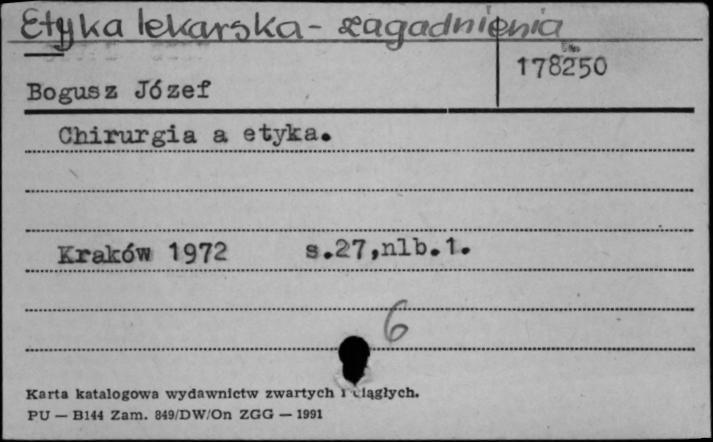 Etyka lekarska - zagadnienia
178250
Bogusz Józef
Chirurgia a etyka.
Kraków 1972 s.27,nlb.1.
6
Karta katalogowa wydawnictw zwartych i ciągłych.
PU — B144 Zam. 849/DW/On ZGG — 1991